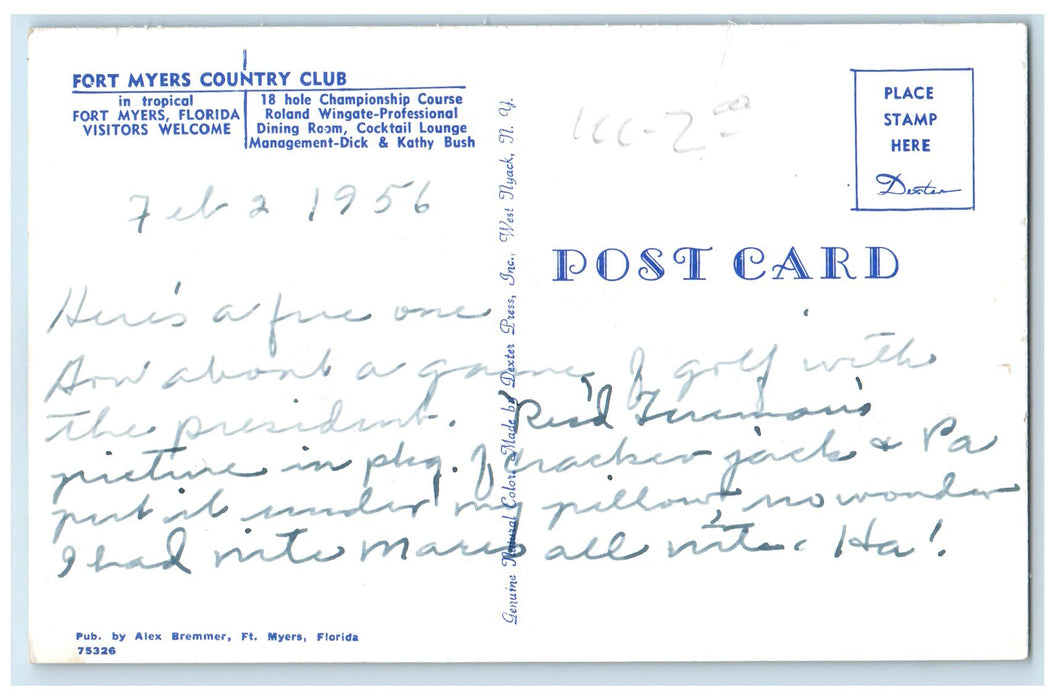 FORT MYERS COUNTRY CLUB
in tropical
FORT MYERS, FLORIDA
VISITORS WELCOME
18 hole Championship Course
Roland Wingate-Professional
Dining Room, Cocktail Lounge
Management-Dick & Kathy Bush
Feb 2 1956
Here's a free one
How about a game of golf with
the president. Rec'd Truman's
picture in pkg. of cracker jack & Pa
put it under my pillow no wonder
I had nite mares all nite. Ha!
Genuine Natural Color Made by Dexter Press, Inc., West Nyack, N. Y.
PLACE
STAMP
HERE
Dexter
POST CARD
Pub. by Alex Bremmer, Ft. Myers, Florida
75326